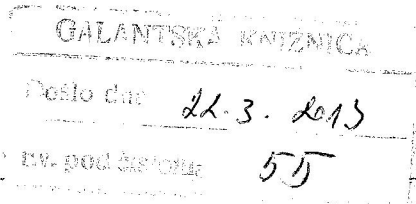 GALANTSKÁ KNIŽNICA
Došlo dňa 22.3.2013
nv. pod číslom 55